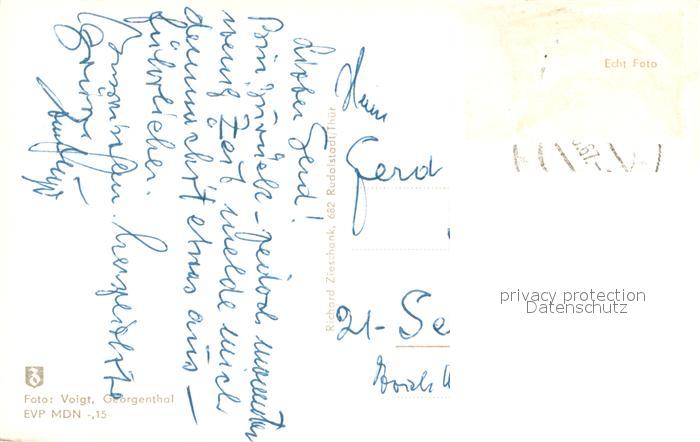 Lieber Gerd!
Bin zurück – jedoch momentan
wenig Zeit, melde mich
demnächst etwas aus-
führlicher.
Inzwischen herzlichste
Grüße
Herrn
Gerd
21- Se
Richard Zieschank, 682 Rudolstadt/Thür.
Echt Foto
privacy protection
Datenschutz
Foto: Voigt, Georgenthal
EVP MDN -,15